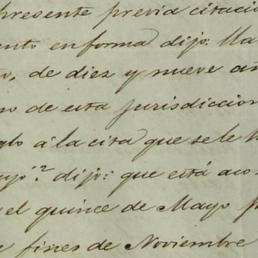 presente previa citacio
ento en forma dijo: lla
, de diez y nueve añ
no de esta jurisdiccion
glo á la cita que se le h
ayo? dijo: que está aco
el quince de Mayo p
fines de Noviembre